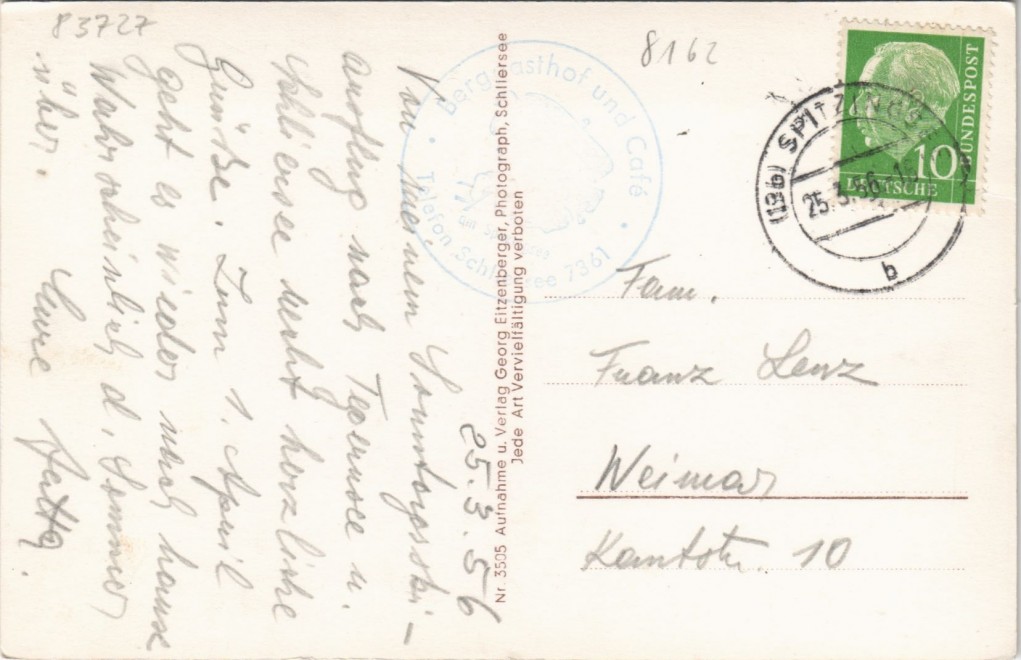 83727
8162
25.3.56
Von meinem Sonntagsski-
ausflug nach Tegernsee u.
Schliersee recht herzliche
Grüße. Zum 1. April
geht es wieder nach hause
Wahrscheinlich d. Sommer
über.
Eure
Berggasthof und Café
Telefon Schliersee 7361
Nr. 3505 Aufnahme u. Verlag Georg Eitzenberger, Photograph, Schliersee
Jede Art Vervielfältigung verboten
(13b) SPITZINGSEE
25.3.56
b
10
DEUTSCHE
BUNDESPOST
Fam.
Franz Lenz
Weimar
Kantstr. 10